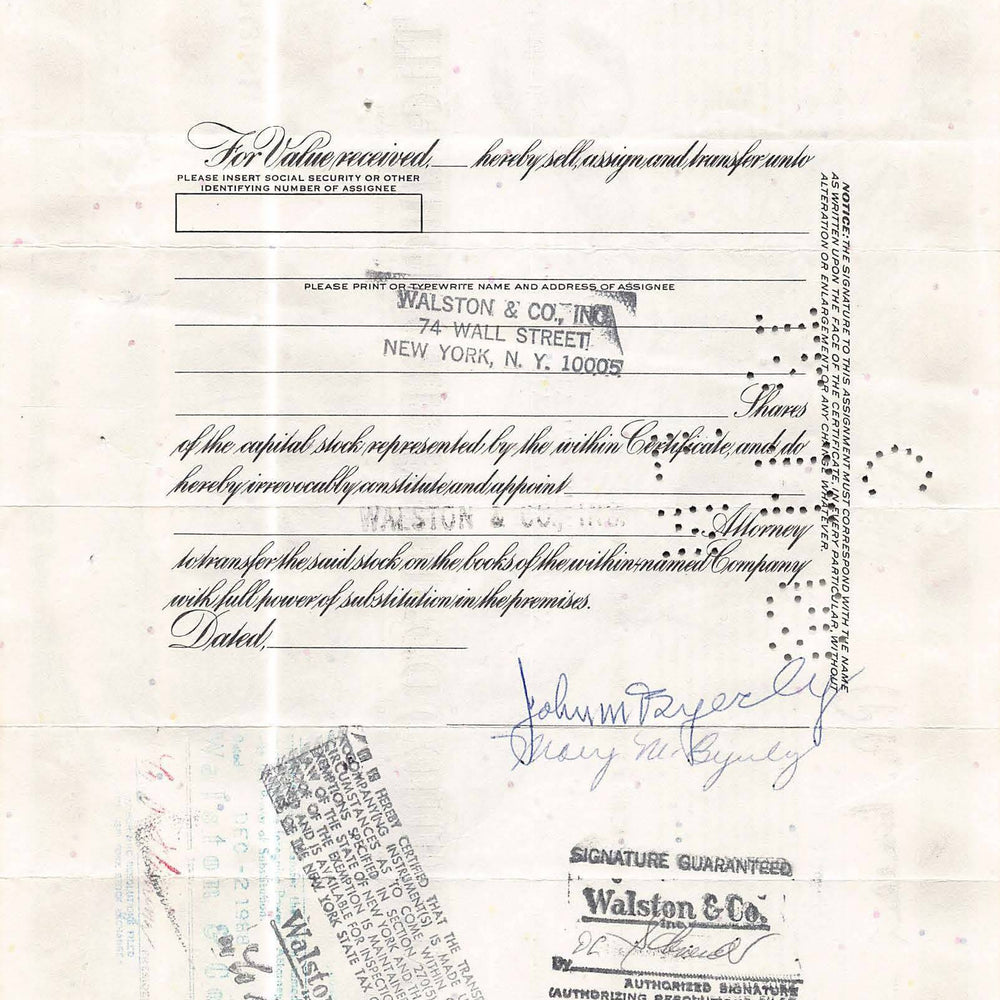 For Value received, ___ hereby sell, assign and transfer unto
PLEASE INSERT SOCIAL SECURITY OR OTHER
IDENTIFYING NUMBER OF ASSIGNEE
PLEASE PRINT OR TYPEWRITE NAME AND ADDRESS OF ASSIGNEE
WALSTON & CO., INC.
74 WALL STREET
NEW YORK, N. Y. 10005
Shares
of the capital stock represented by the within Certificate, and do
hereby irrevocably constitute and appoint
WALSTON & CO., INC.
Attorney
to transfer the said stock on the books of the within-named Company
with full power of substitution in the premises.
Dated,
NOTICE: THE SIGNATURE TO THIS ASSIGNMENT MUST CORRESPOND WITH THE NAME
AS WRITTEN UPON THE FACE OF THE CERTIFICATE, IN EVERY PARTICULAR, WITHOUT
ALTERATION OR ENLARGEMENT OR ANY CHANGE WHATEVER.
John M Byerly
Mary M. Byerly
IT IS HEREBY CERTIFIED THAT THE
ACCOMPANYING INSTRUMENT(S) IS MADE
CIRCUMSTANCES AS TO COME WITHIN
EXEMPTIONS SPECIFIED IN SECTION 270(5)
LAW OF THE STATE OF NEW YORK AND
OF THE EXEMPTION IS MAINTAINED
AND IS AVAILABLE FOR INSPECTION
THE NEW YORK STATE TAX
Walston
DEC -2 1968
SIGNATURE GUARANTEED
Walston & Co.
Inc.
By
AUTHORIZED SIGNATURE